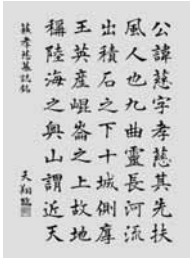 公諱慈字孝慈其先扶
風人也九曲靈長河流
出積石之下十城側厚
王英産崐崙之上故地
稱陸海之奥山謂近天
天翔臨